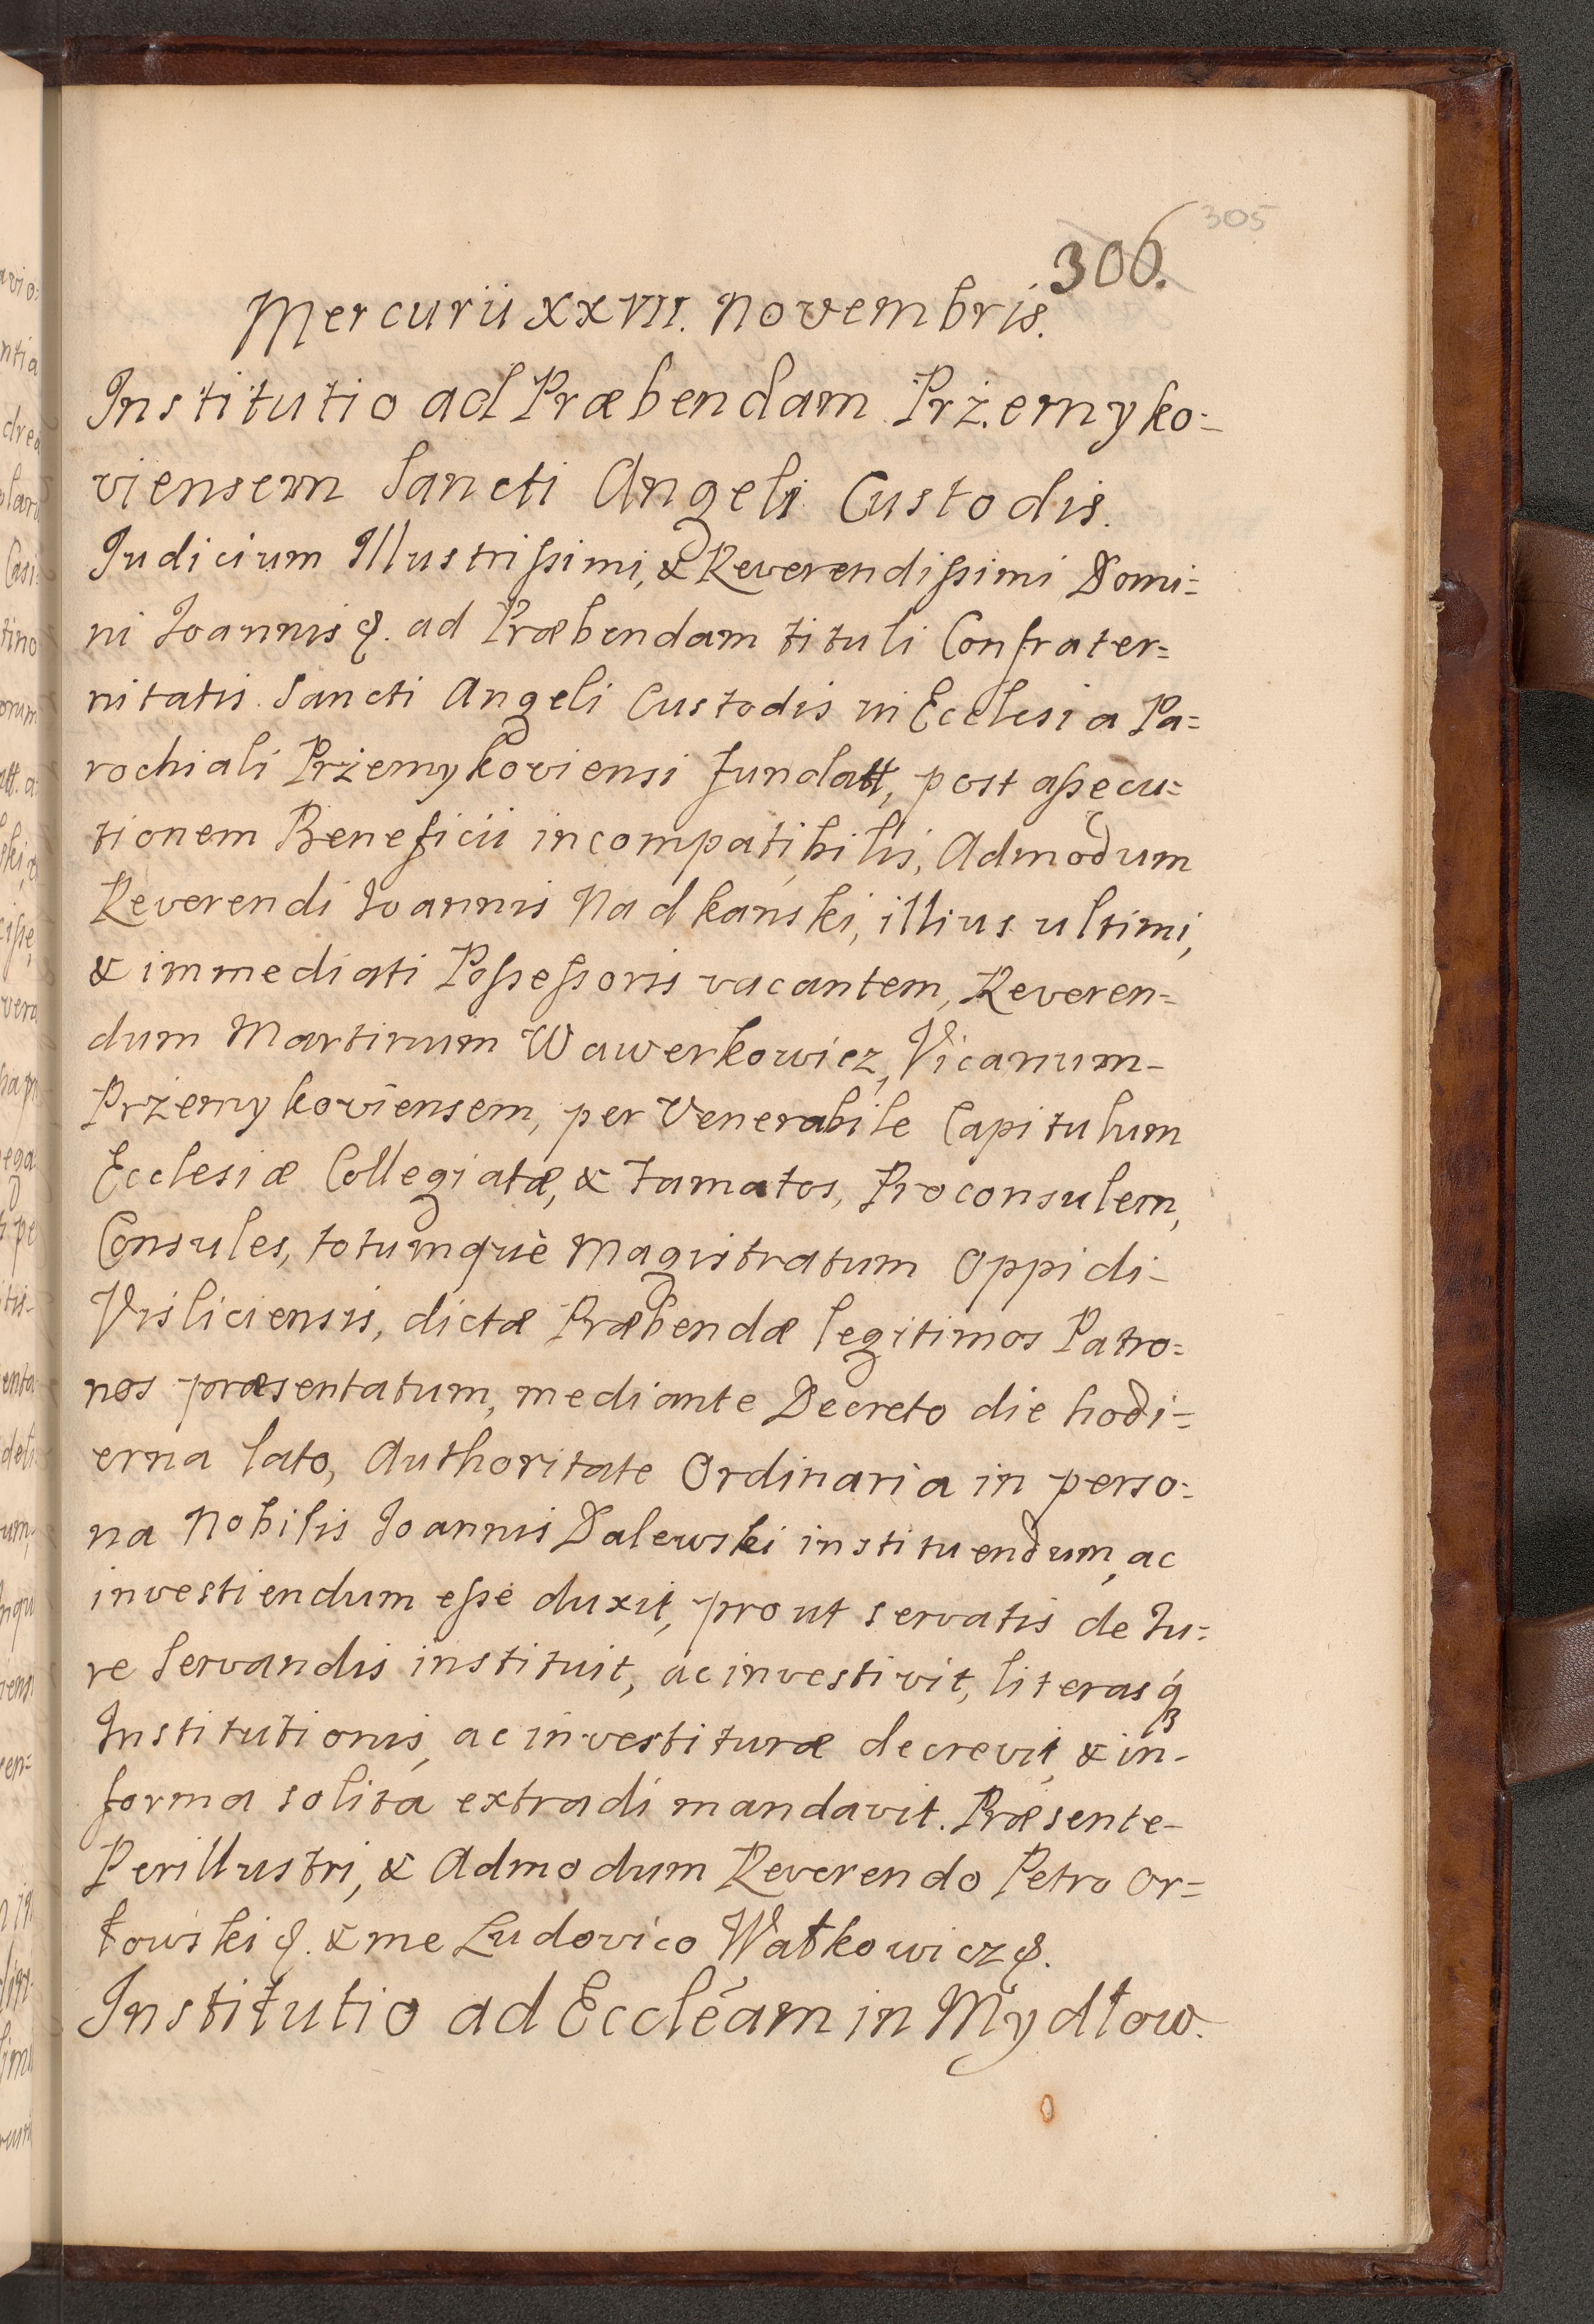 305
306.
Mercurii XXVII. Novembris.
Institutio ad Præbendam Prżemyko=
viensem Sancti Angeli Custodis.
Judicium Illustrissimi, & Reverendissimi Domi=
ni Joannis &. ad Præbendam tituli Confrater=
nitatis Sancti Angeli Custodis in Ecclesia Pa=
rochiali Prżemykoviensi fundatt, post assecu=
tionem Beneficii incompatibilis, Admodum
Reverendi Joannis Nadkański, illius ultimi,
& immediati Possessoris vacantem, Reveren=
dum Martinum Wawerkowicz, Vicarium-
Prżemykoviensem, per Venerabile Capitulum
Ecclesiæ Collegiatæ, & Famatos, Proconsulem,
Consules, totumquè Magistratum Oppidi-
Visliciensis, dictæ Præbendæ legitimos Patro=
nos præsentatum, mediante Decreto die hodi=
erna lato, Authoritate Ordinaria in perso=
na Nobilis Joannis Dalewski instituendum, ac
investiendum esse duxit, prout servatis de Ju=
re servandis instituit, ac investivit, literasq́3
Institutionis, ac investituræ decrevit, & in-
forma solita extradi mandavit. Præsente-
Perillustri, & Admodum Reverendo Petro Or=
łowski &. & me Ludovico Wałkowicz &.
Institutio ad Eccleãm in Mydłow.